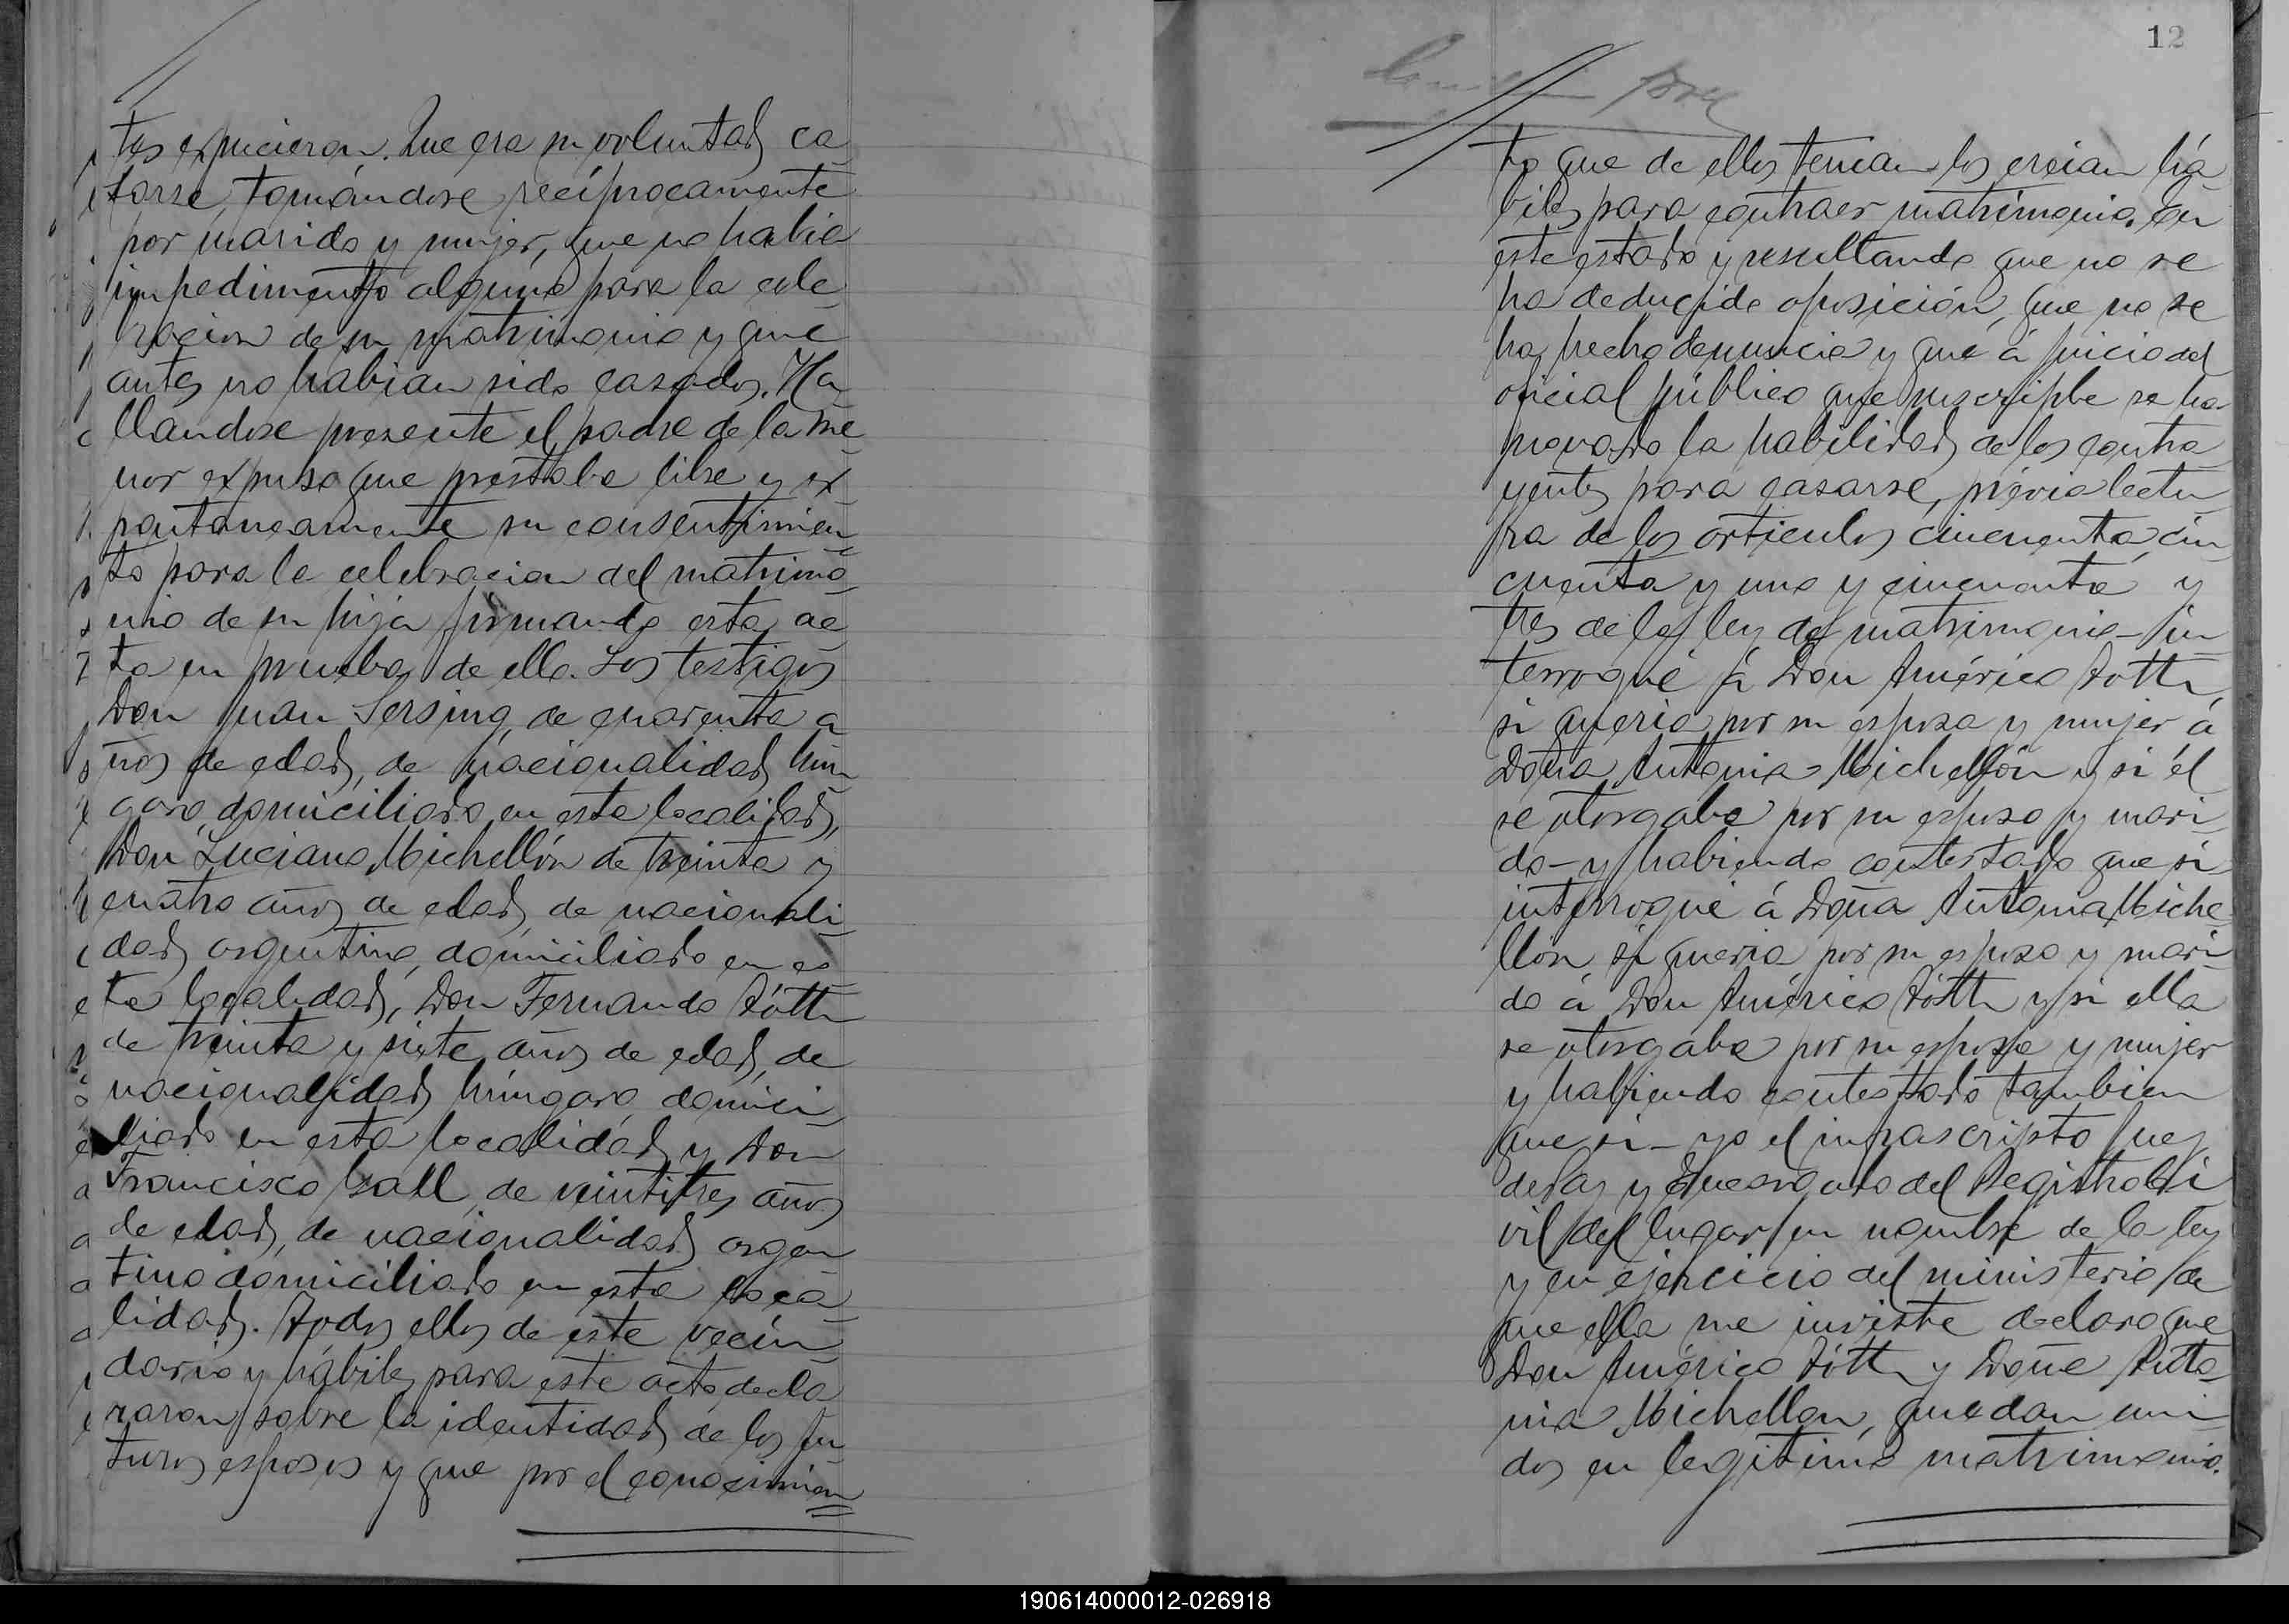 tes expucieron. Que era su voluntad ca
sarse, tomándose recíprocamente
por marido y mujer, que no habia
impedimento alguno para la cele
bracion de su matrimonio y que
antes no habian sido casados. Ha
llandose presente el padre de la me
nor expuso que prestaba libre y ex
pontaneamente su consentimien
to para la celebracion del matrimo
nio de su hija firmando esta ac
ta en prueba de ello. Los testigos
Don Juan Sersing, de cuarenta a
ños de edad, de nacionalidad hún
garo, domiciliado en esta localidad,
Don Luciano Michellón de treinta y
cuatro años de edad, de nacionali
dad argentina, domiciliado en es
ta localidad, Don Fernando Tóth
de treinta y siete años de edad, de
nacionalidad húngaro, domici
liado en esta localidad y Don
Francisco de veintitres años
de edad, de nacionalidad argen
tino domiciliado en esta loca
lidad. Todos ellos de este vecin
dario y hábiles para este acto, decla
raron sobre la identidad de los fu
turos esposos y que por el conocimien
12
to que de ellos tenian los creian há
biles para contraer matrimonio. En
este estado y resultando que no se
ha deducido oposición, que no se
ha hecho denuncia y que á juicio del
oficial público que suscripbe se ha
provado la habilidad de los contra
yentes para casarse, prévia lectu
ra de los articulos cincuenta, cin
cuenta y uno y cincuenta y
tres de la ley de matrimonio - in
terrogué á Don Américo Tóth,
si queria por su esposa y mujer á
Doña Antonia Michellón y si él
se otorgaba por su esposo y mari
do - y habiendo contestado que si
interrogué á Doña Antonia Miche
llón, si queria por su esposo y mari
do á Don Américo Tóth y si ella
se otorgaba por su esposa y mujer
y habiendo contestado tambien
que si - yo el infrascripto Juez
de Paz y Encargado del Registro Ci
vil del lugar, en nombre de la ley
y en ejercicio del ministerio de
que ella me inviste declaro que
Don Américo Tóth y Doña Anto
nia Michellon, quedan uni
dos en legitimo matrimonio.
190614000012-026918